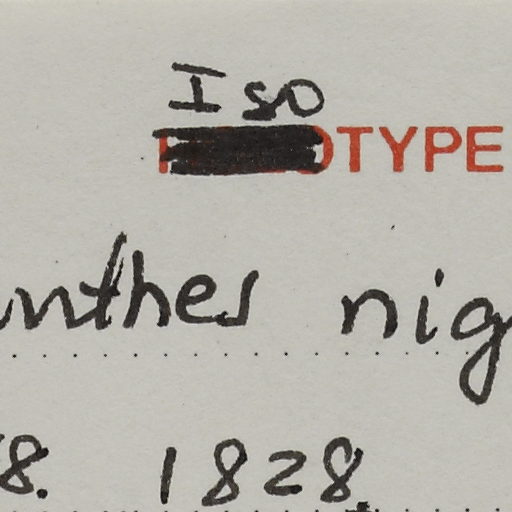 Iso
TYPE
nthes nig
8. 1828.